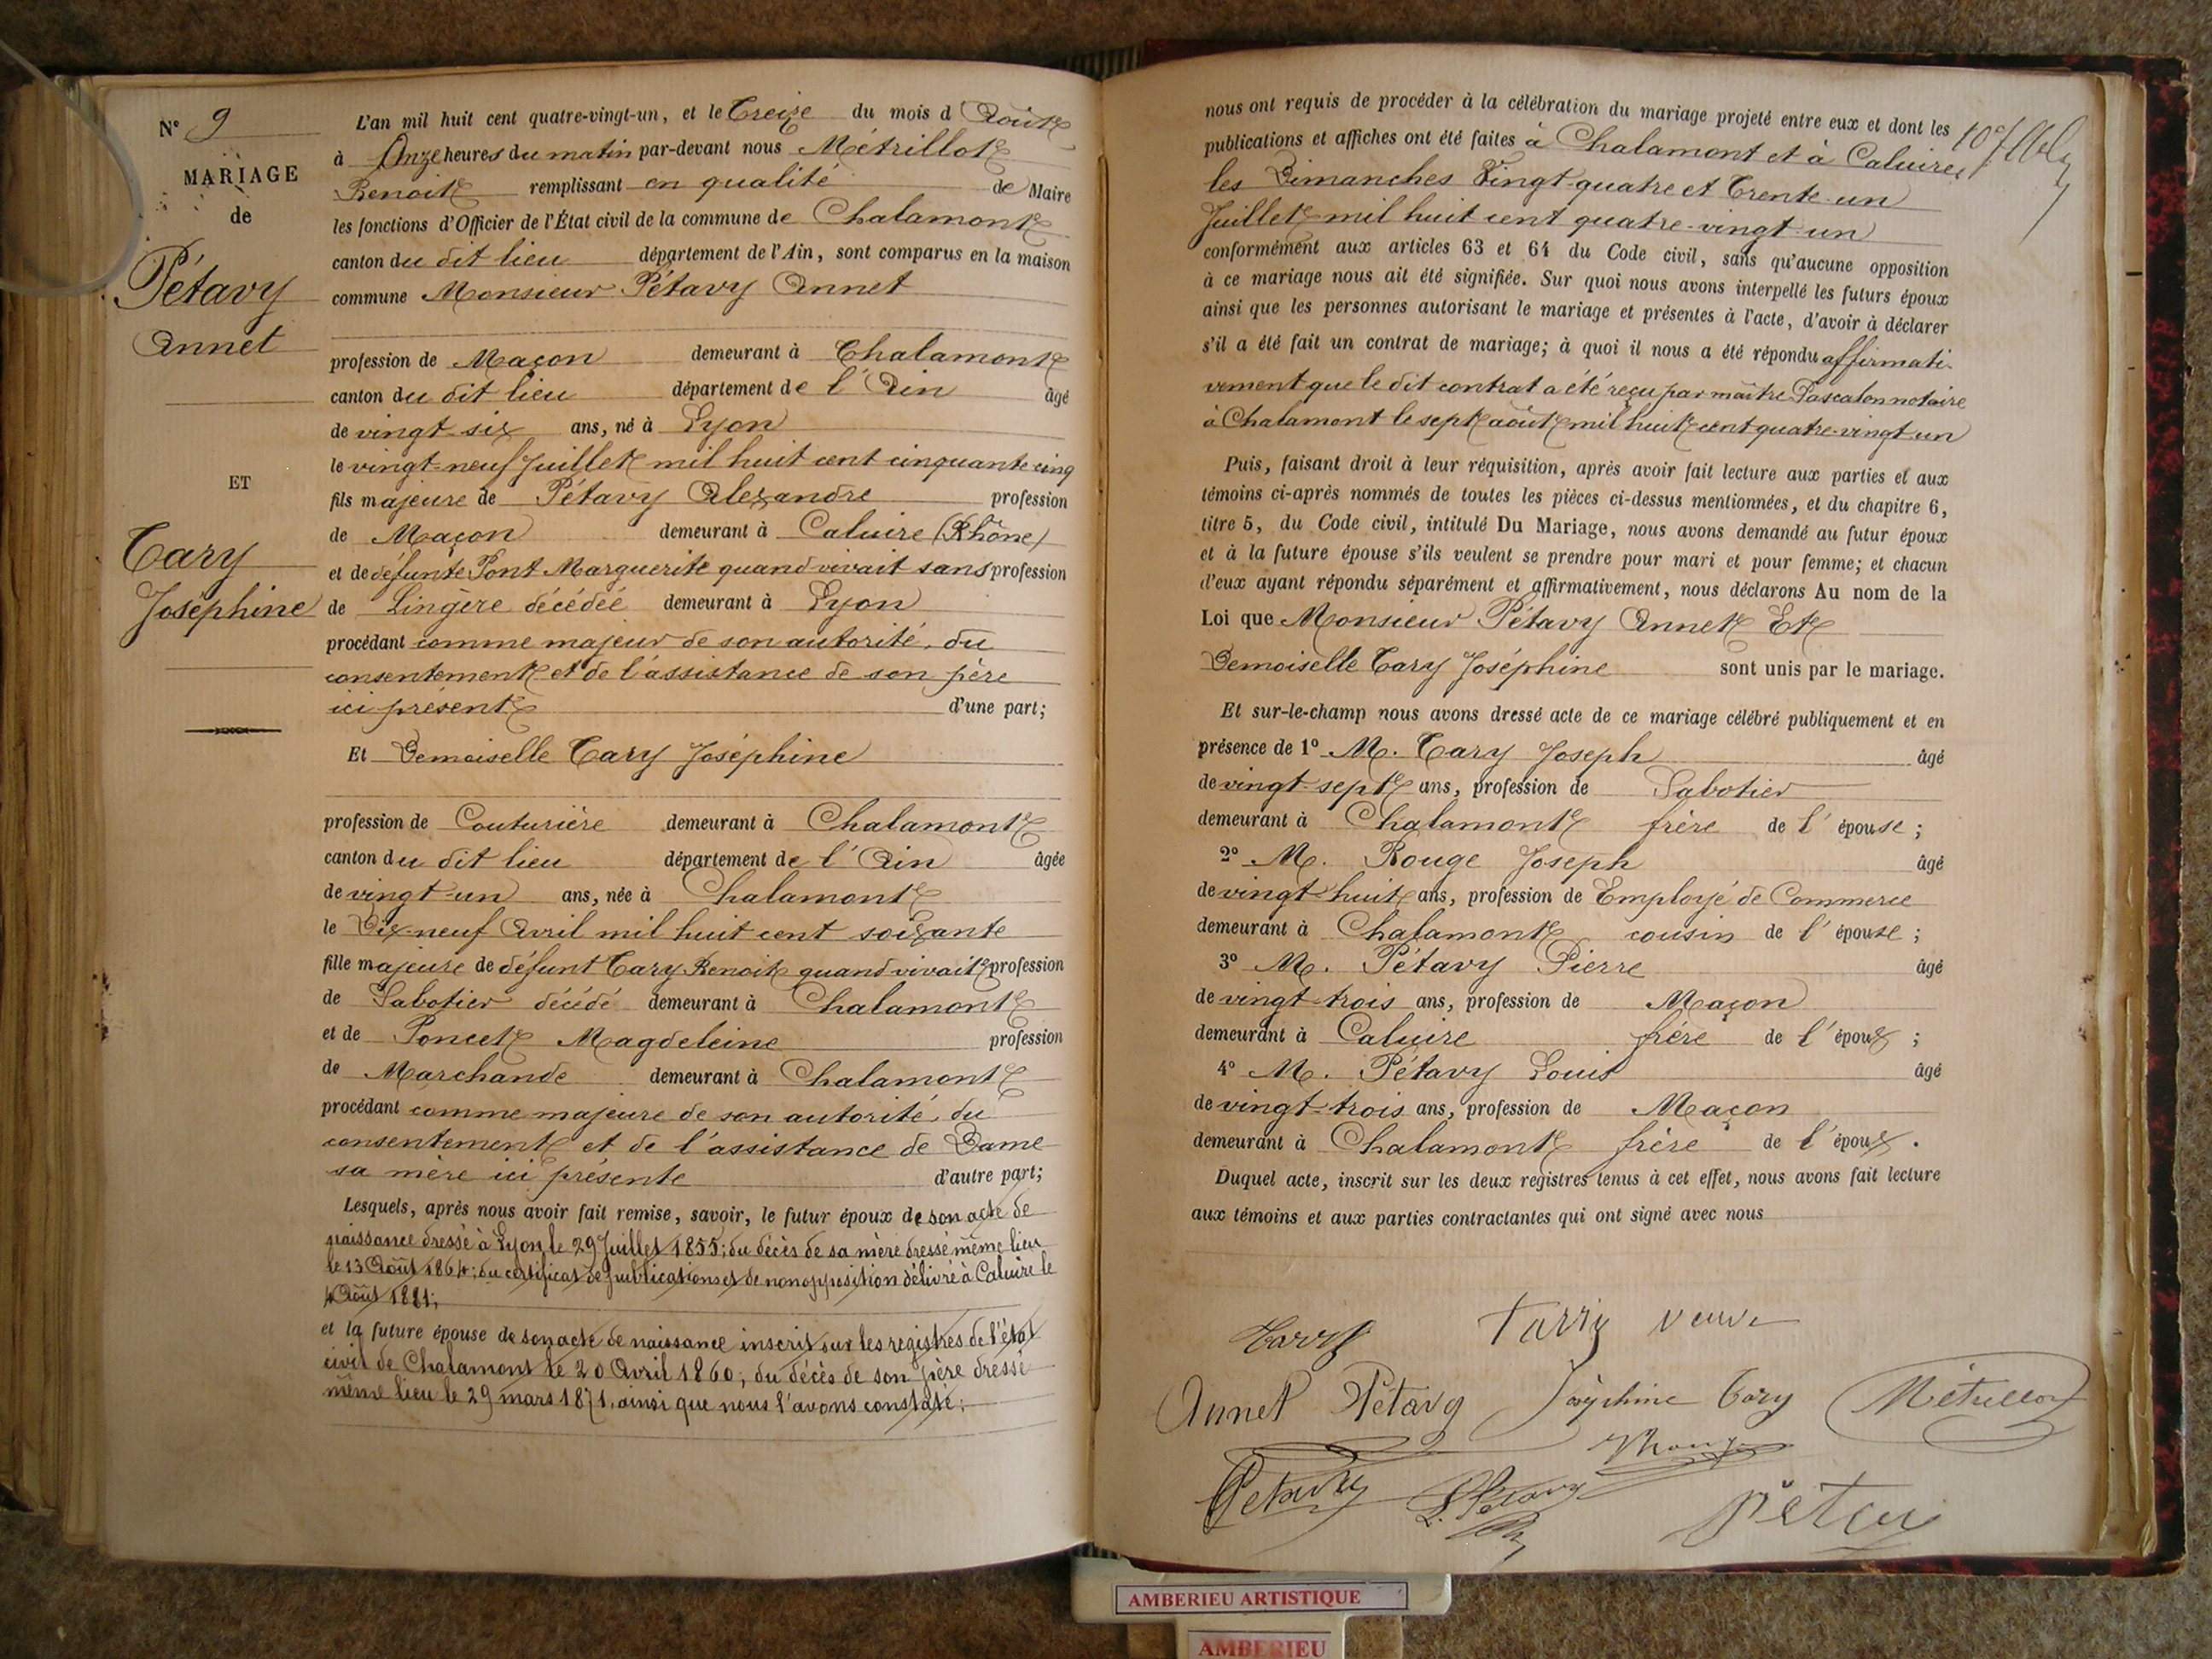 N° 9
MARIAGE
de
Pétavy
Annet
ET
Tary
Joséphine
L'an mil huit cent quatre-vingt-un, et le Treize du mois d'Août
à Onze heures du matin par-devant nous Métrillot
Benoit remplissant en qualité de Maire
les fonctions d'Officier de l'État civil de la commune de Chalamont
canton du dit lieu département de l'Ain, sont comparus en la maison
commune Monsieur Pétavy Annet
profession de Maçon demeurant à Chalamont
canton du dit lieu département de l'Ain âgé
de vingt-six ans, né à Lyon
le vingt-neuf Juillet mil huit cent cinquante cinq
fils majeure de Pétavy Alexandre profession
de Maçon demeurant à Caluire (Rhône)
et de défunte Pont Marguerite quand vivait sans profession
de Lingère décédée demeurant à Lyon
procédant comme majeur de son autorité, du
consentement et de l'assistance de son père
ici présent d'une part;
Et Demoiselle Tary Joséphine
profession de Couturière demeurant à Chalamont
canton du dit lieu département de l'Ain âgée
de vingt-un ans, née à Chalamont
le Dix-neuf Avril mil huit cent soixante
fille majeure de défunt Tary Benoit quand vivait profession
de Sabotier décédé demeurant à Chalamont
et de Poncet Magdeleine profession
de Marchande demeurant à Chalamont
procédant comme majeure de son autorité, du
consentement et de l'assistance de Dame
sa mère ici présente d'autre part;
Lesquels, après nous avoir fait remise, savoir, le futur époux de son acte de
naissance dressé à Lyon le 29 Juillet 1855; du décès de sa mère dressé même lieu
le 13 Août 1864; du certificat de publications et de non opposition délivré à Caluire le
4 Août 1881;
et la future épouse de son acte de naissance inscrit sur les registres de l'état
civil de Chalamont le 20 Avril 1860; du décès de son père dressé
même lieu le 29 mars 1871, ainsi que nous l'avons constaté;
nous ont requis de procéder à la célébration du mariage projeté entre eux et dont les
publications et affiches ont été faites à Chalamont et à Caluire,
les Dimanches Vingt-quatre et Trente-un
Juillet mil huit cent quatre-vingt-un
conformément aux articles 63 et 64 du Code civil, sans qu'aucune opposition
à ce mariage nous ait été signifiée. Sur quoi nous avons interpellé les futurs époux
ainsi que les personnes autorisant le mariage et présentes à l'acte, d'avoir à déclarer
s'il a été fait un contrat de mariage; à quoi il nous a été répondu affirmati-
vement que le dit contrat a été reçu par maître Pascalon notaire
à Chalamont le sept août mil huit cent quatre-vingt-un
Puis, faisant droit à leur réquisition, après avoir fait lecture aux parties et aux
témoins ci-après nommés de toutes les pièces ci-dessus mentionnées, et du chapitre 6,
titre 5, du Code civil, intitulé Du Mariage, nous avons demandé au futur époux
et à la future épouse s'ils veulent se prendre pour mari et pour femme; et chacun
d'eux ayant répondu séparément et affirmativement, nous déclarons Au nom de la
Loi que Monsieur Pétavy Annet Et
Demoiselle Tary Joséphine sont unis par le mariage.
Et sur-le-champ nous avons dressé acte de ce mariage célébré publiquement et en
présence de 1° M. Tary Joseph âgé
de vingt-sept ans, profession de Sabotier
demeurant à Chalamont frère de l'épouse;
2° M. Rouge Joseph âgé
de vingt-huit ans, profession de Employé de Commerce
demeurant à Chalamont cousin de l'épouse;
3° M. Pétavy Pierre âgé
de vingt-trois ans, profession de Maçon
demeurant à Caluire frère de l'époux;
4° M. Pétavy Louis âgé
de vingt-trois ans, profession de Maçon
demeurant à Chalamont frère de l'époux.
Duquel acte, inscrit sur les deux registres tenus à cet effet, nous avons fait lecture
aux témoins et aux parties contractantes qui ont signé avec nous
Tarry Tarry veuve
Annet Pétavy Joséphine Tary Métrillot
Petavy L. Pétavy
AMBERIEU ARTISTIQUE
AMBERIEU